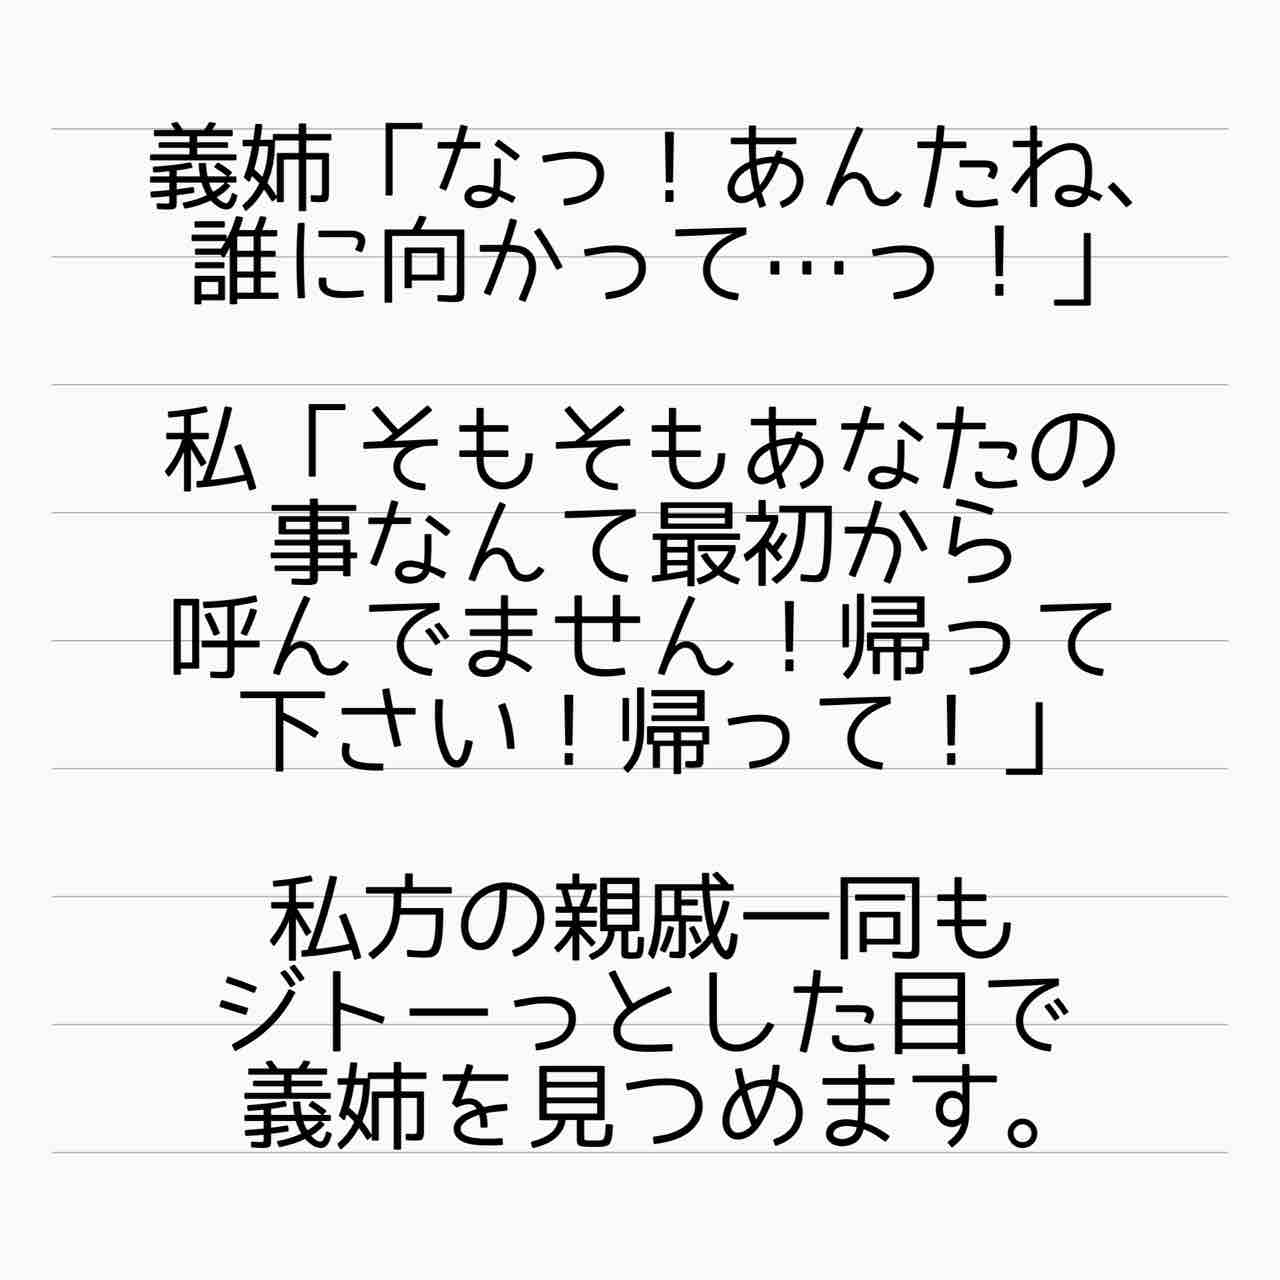 義姉「なっ！あんたね、
誰に向かって…っ！」
私「そもそもあなたの
事なんて最初から
呼んでません！帰って
下さい！帰って！」
私方の親戚一同も
ジトーっとした目で
義姉を見つめます。